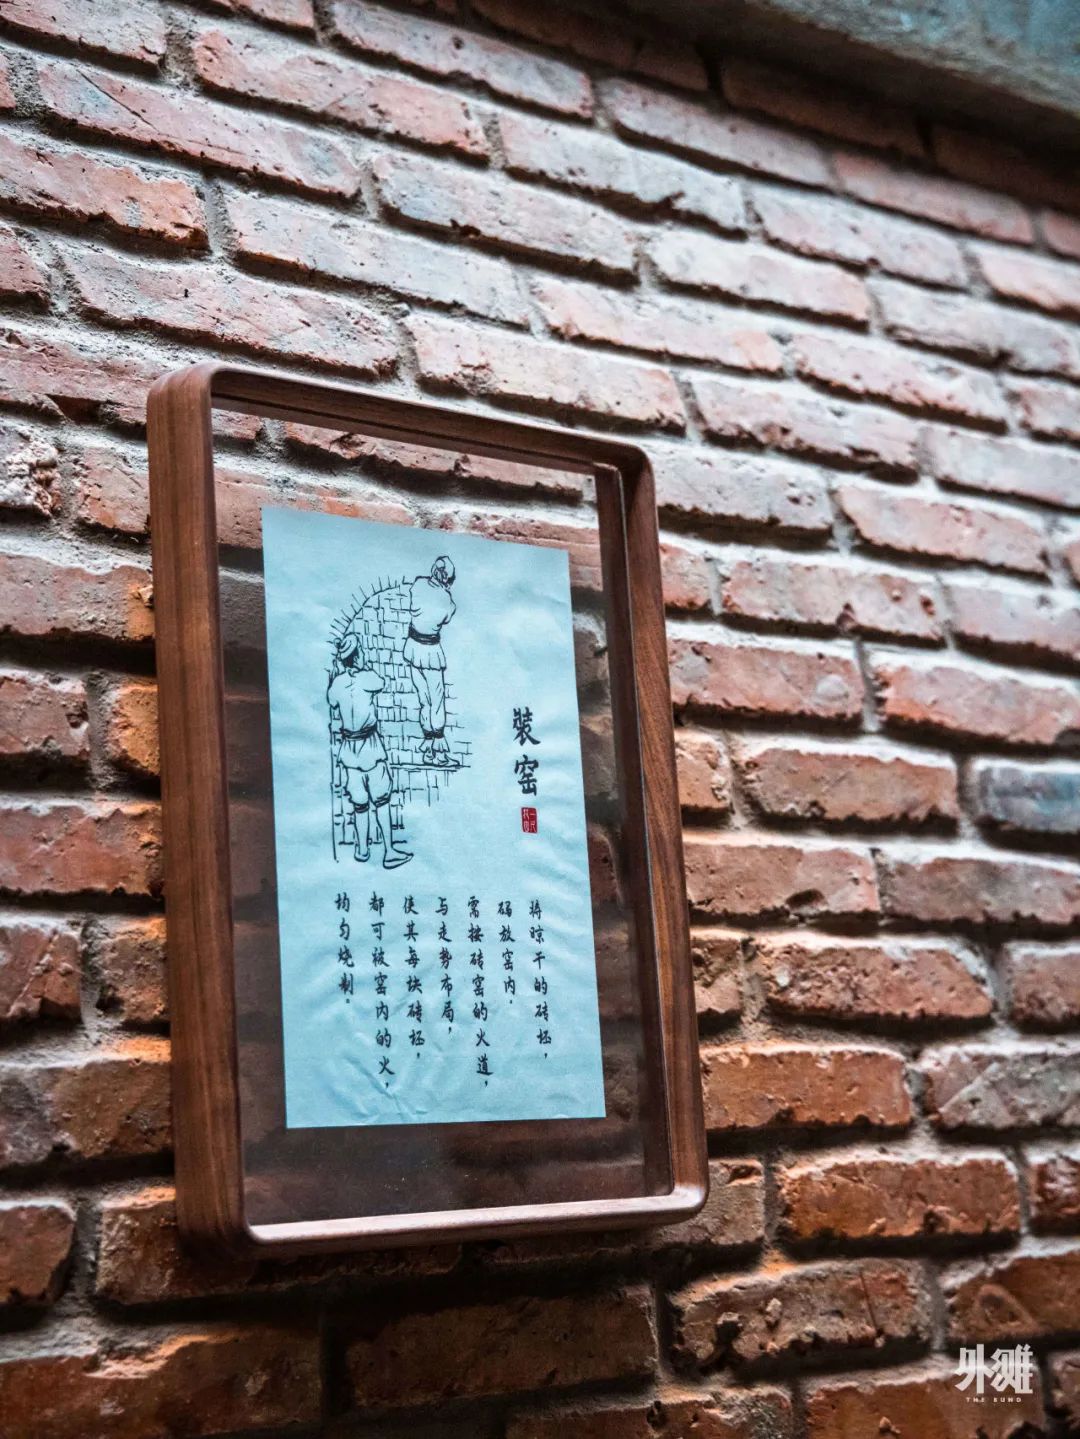 裝窑
将晾干的砖坯，
码放窑内。
需按砖窑的火道，
与走势布局，
使其每块砖坯，
都可被窑内的火，
均匀烧制。
外滩
THE BUND